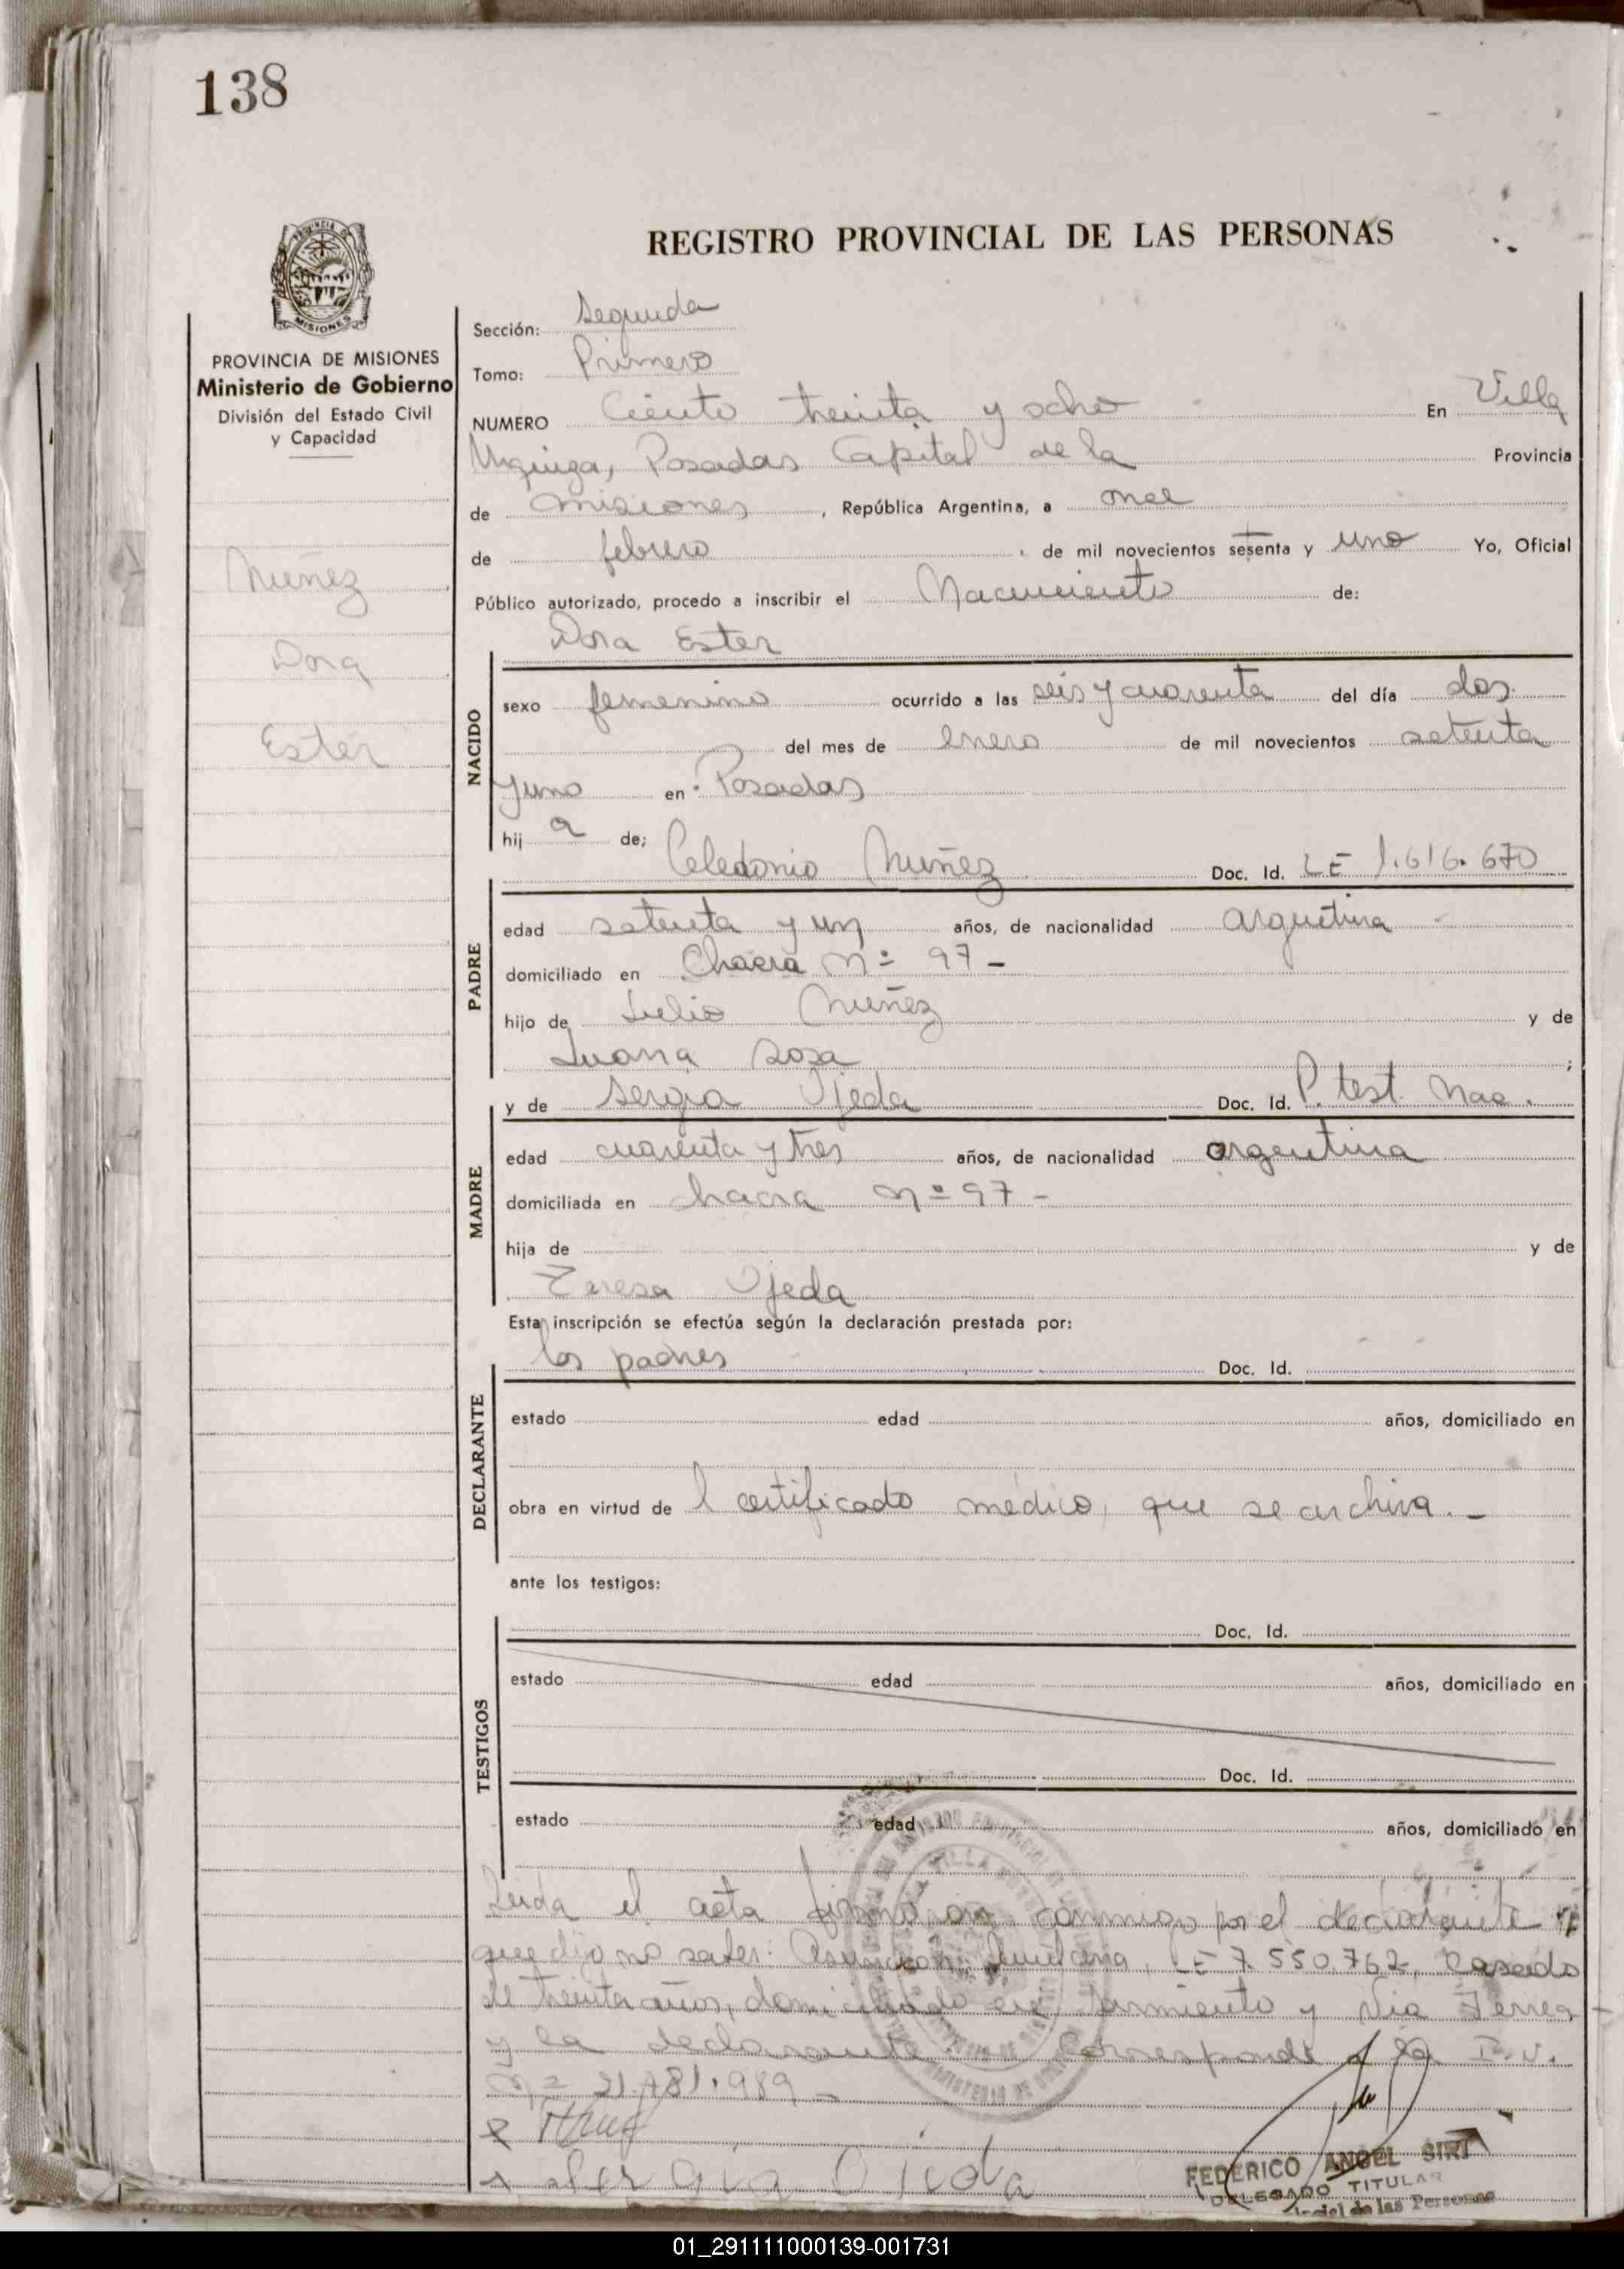 138
REGISTRO PROVINCIAL DE LAS PERSONAS
PROVINCIA DE
MISIONES
PROVINCIA DE MISIONES
Ministerio de Gobierno
División del Estado Civil
y Capacidad
Nuñez
Dora
Ester
Sección: Segunda
Tomo: Primero
NUMERO Ciento treinta y ocho En Villa
Urquiza, Posadas Capital de la Provincia
de Misiones , República Argentina, a once
de febrero , de mil novecientos sesenta y uno Yo, Oficial
Público autorizado, procedo a inscribir el Nacimiento de:
Dora Ester
NACIDO
sexo femenino ocurrido a las seis y cuarenta del día dos
del mes de enero de mil novecientos setenta
y uno en Posadas
hij a de;
Celedonio Nuñez Doc. Id. LE 1.616.670
PADRE
edad setenta y un años, de nacionalidad argentina
domiciliado en Chacra Nº 97 -
hijo de Julio Nuñez y de
Juana Sosa ;
y de Sergia Ojeda Doc. Id. P. test. Nac.
MADRE
edad cuarenta y tres años, de nacionalidad argentina
domiciliada en chacra Nº 97 -
hija de y de
Teresa Ojeda
Esta inscripción se efectúa según la declaración prestada por:
los padres Doc. Id.
DECLARANTE
estado edad años, domiciliado en
obra en virtud de l certificado médico, que se archiva. -
ante los testigos:
Doc. Id.
TESTIGOS
estado edad años, domiciliado en
Doc. Id.
estado edad años, domiciliado en
Leida el acta conmigo por el declarante
que dijo no saber: LE 7.550.762, Casado
de treinta años, domiciliado en Sarmiento y Via Ferrea
y la declarante Corresponde a la
Nº 21.781.989 -
Sergia Ojeda
FEDERICO ANGEL SIRI
DELEGADO TITULAR
de las Personas
01_291111000139-001731